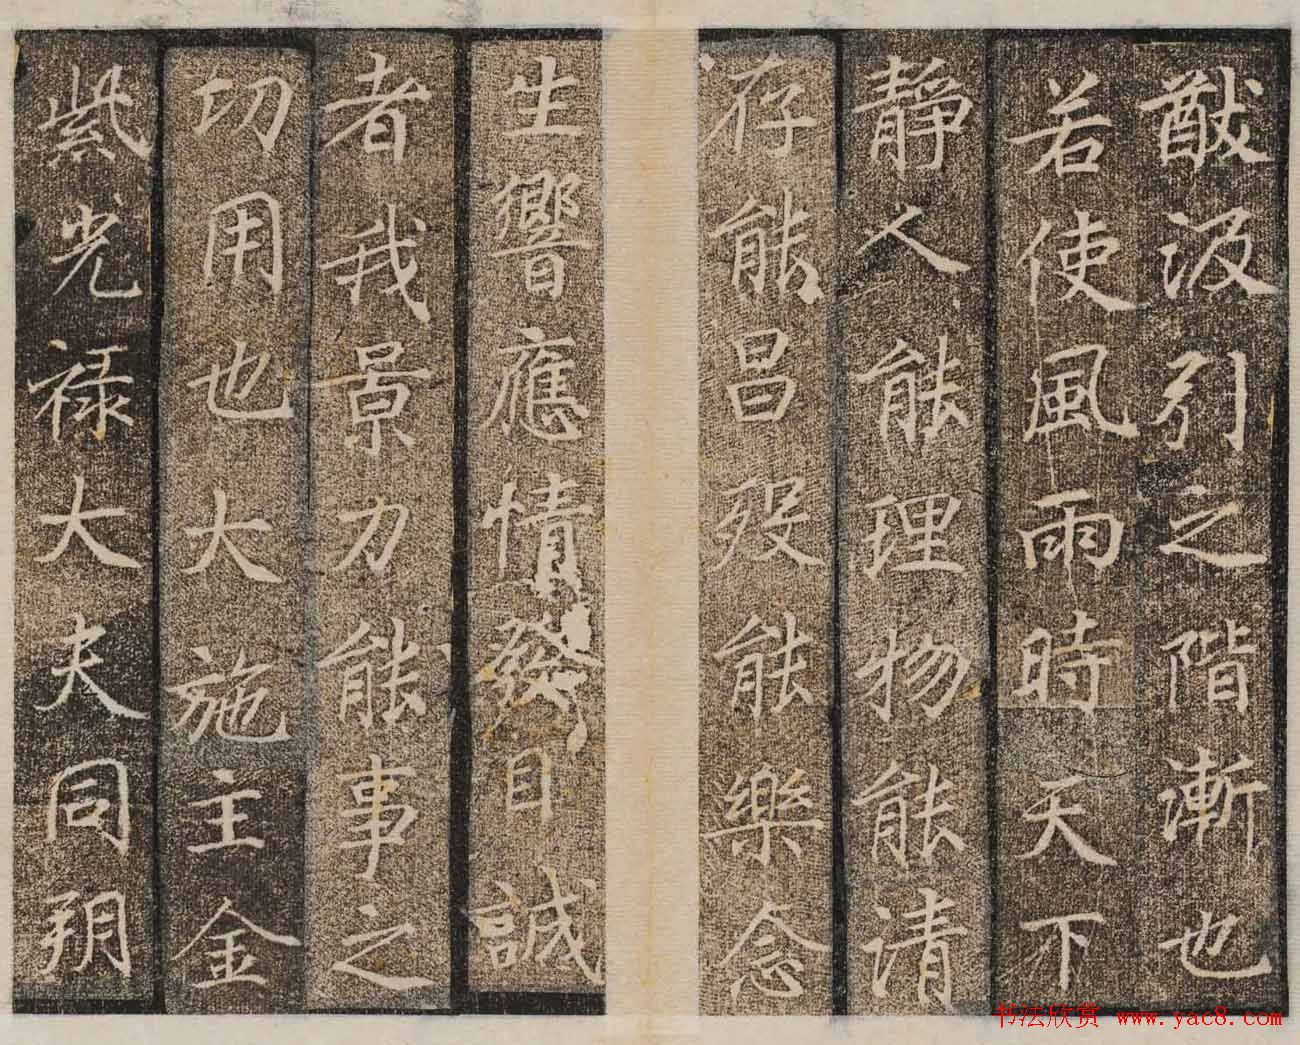 猷汲引之階漸也
若使風雨時天下
靜人能理物能清
存能昌歿能樂念
生響應情發目誠
者我景力能事之
功用也大施主金
紫光禄大夫同朔
书法欣赏 www.yac8.com